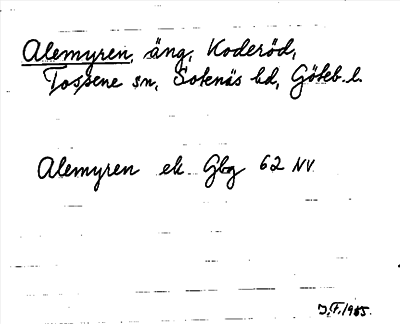 Alemyren, äng, Koderöd,
Tossene sn, Sotenäs hd, Göteb. l.
Alemyren ek Gbg 62 NV
J.F. 1985.